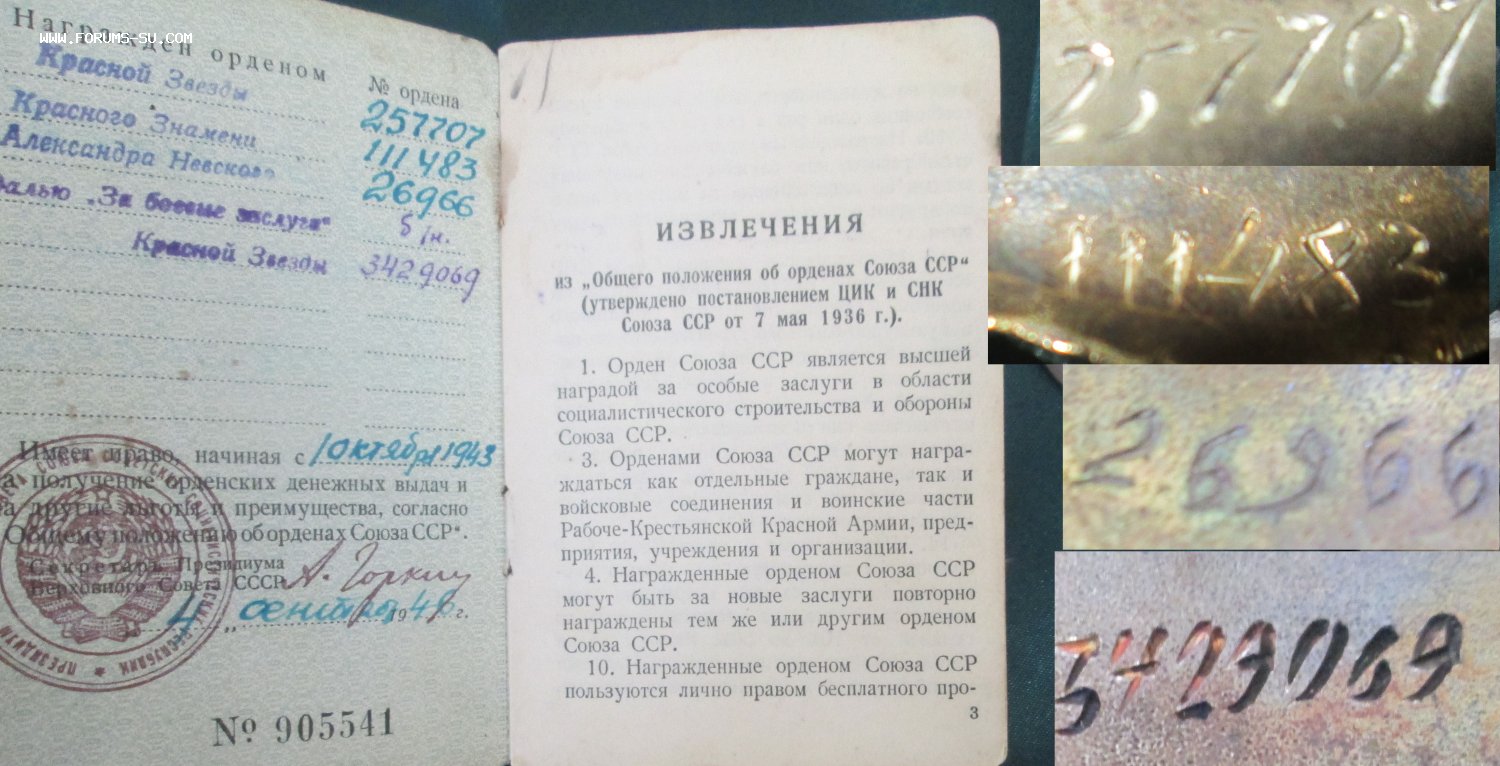 www.forums-su.com
Награжден орденом
№ ордена
Красной Звезды 257707
Красного Знамени 111483
Александра Невского 26966
далью „За боевые заслуги“ б/н.
Красной Звезды 3429069
Имеет право, начиная с 1 октября 1943
на получение орденских денежных выдач и
на другие льготы и преимущества, согласно
„Общему положению об орденах Союза ССР“.
Секретарь Президиума
Верховного Совета СССР А. Горкин
4 „ сентября 1946 г.
№ 905541
ИЗВЛЕЧЕНИЯ
из „Общего положения об орденах Союза ССР“
(утверждено постановлением ЦИК и СНК
Союза ССР от 7 мая 1936 г.).
1. Орден Союза ССР является высшей
наградой за особые заслуги в области
социалистического строительства и обороны
Союза ССР.
3. Орденами Союза ССР могут награ-
ждаться как отдельные граждане, так и
войсковые соединения и воинские части
Рабоче-Крестьянской Красной Армии, пред-
приятия, учреждения и организации.
4. Награжденные орденом Союза ССР
могут быть за новые заслуги повторно
награждены тем же или другим орденом
Союза ССР.
10. Награжденные орденом Союза ССР
пользуются лично правом бесплатного про-
3
257707
111483
26966
3429069